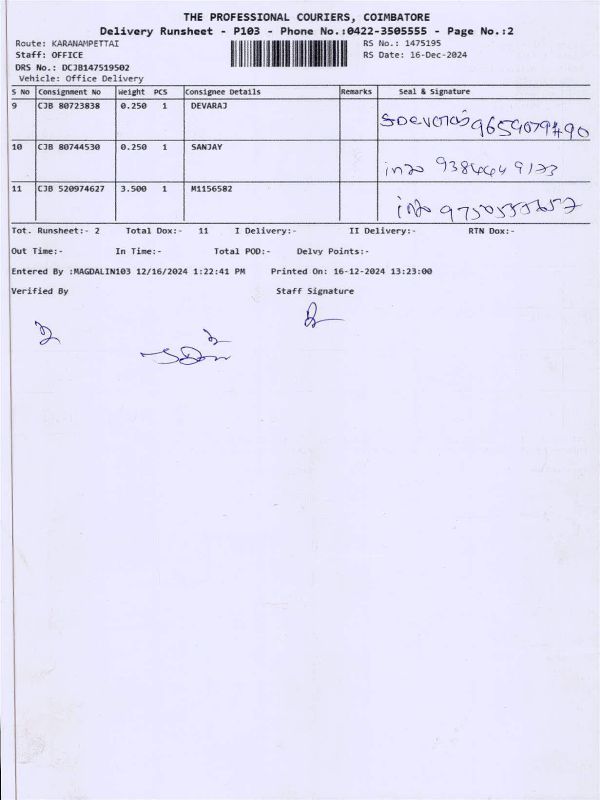 THE PROFESSIONAL COURIERS, COIMBATORE
Delivery Runsheet - P103 - Phone No.:0422-3505555 - Page No.:2
Route: KARANAMPETTAI RS No.: 1475195
Staff: OFFICE RS Date: 16-Dec-2024
DRS No.: DCJB147519502
Vehicle: Office Delivery
S No Consignment No Weight PCS Consignee Details Remarks Seal & Signature
9 CJB 80723838 0.250 1 DEVARAJ
10 CJB 80744530 0.250 1 SANJAY
11 CJB 520974627 3.500 1 M1156582
Tot. Runsheet:- 2 Total Dox:- 11 I Delivery:- II Delivery:- RTN Dox:-
Out Time:- In Time:- Total POD:- Delvy Points:-
Entered By :MAGDALIN103 12/16/2024 1:22:41 PM Printed On: 16-12-2024 13:23:00
Verified By Staff Signature